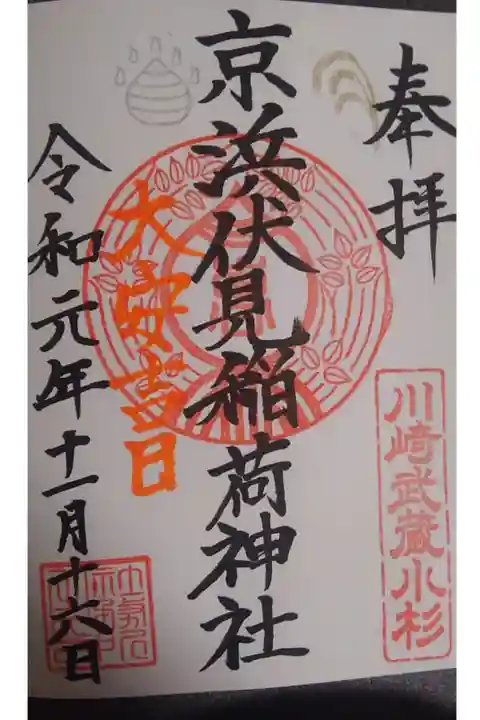 奉拝
川崎武蔵小杉
京浜伏見稲荷神社
大安吉日
令和元年十一月十六日